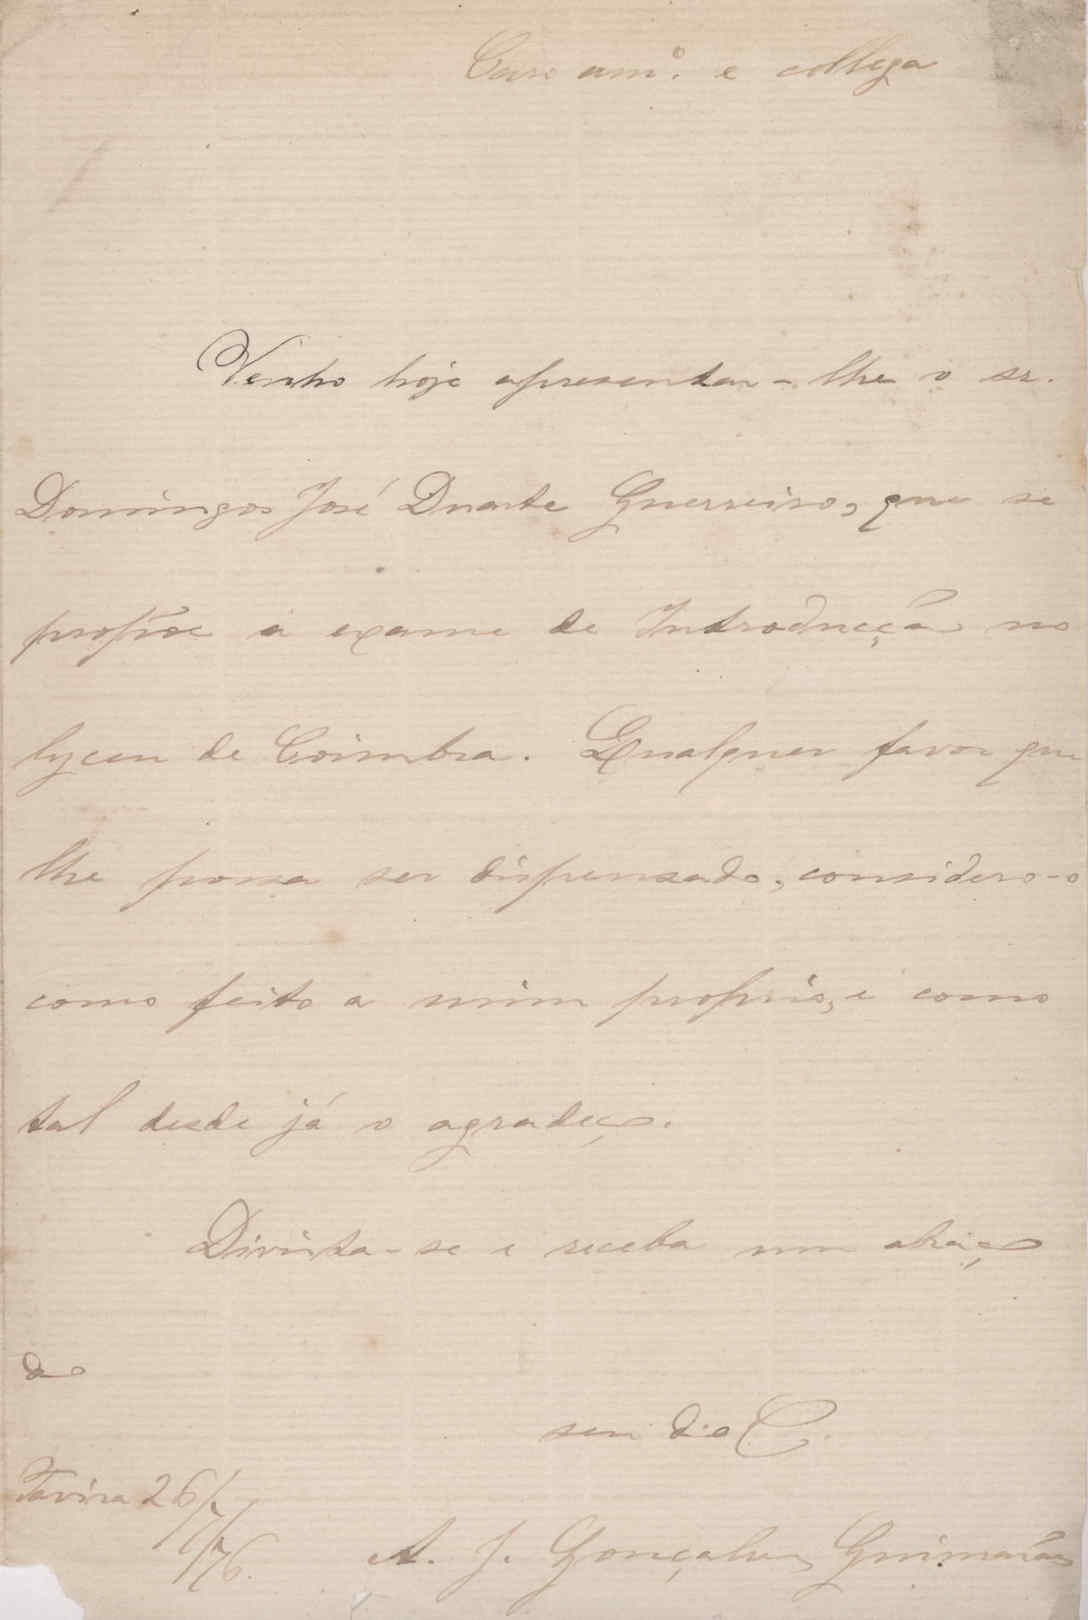 Caro am.º e collega
Venho hoje apresentar-lhe o sr.
Domingos José Duarte Guerreiro, que se
propõe a exame de Introducção no
lyceu de Coimbra. Qualquer favor que
lhe possa ser dispensado, considero-o
como feito a mim proprio, e como
tal desde já o agradeço.
Divirta-se e receba um abraço
do
seu d.o C.
Tavira 26/7/76.
A. J. Gonçalves Guimarães